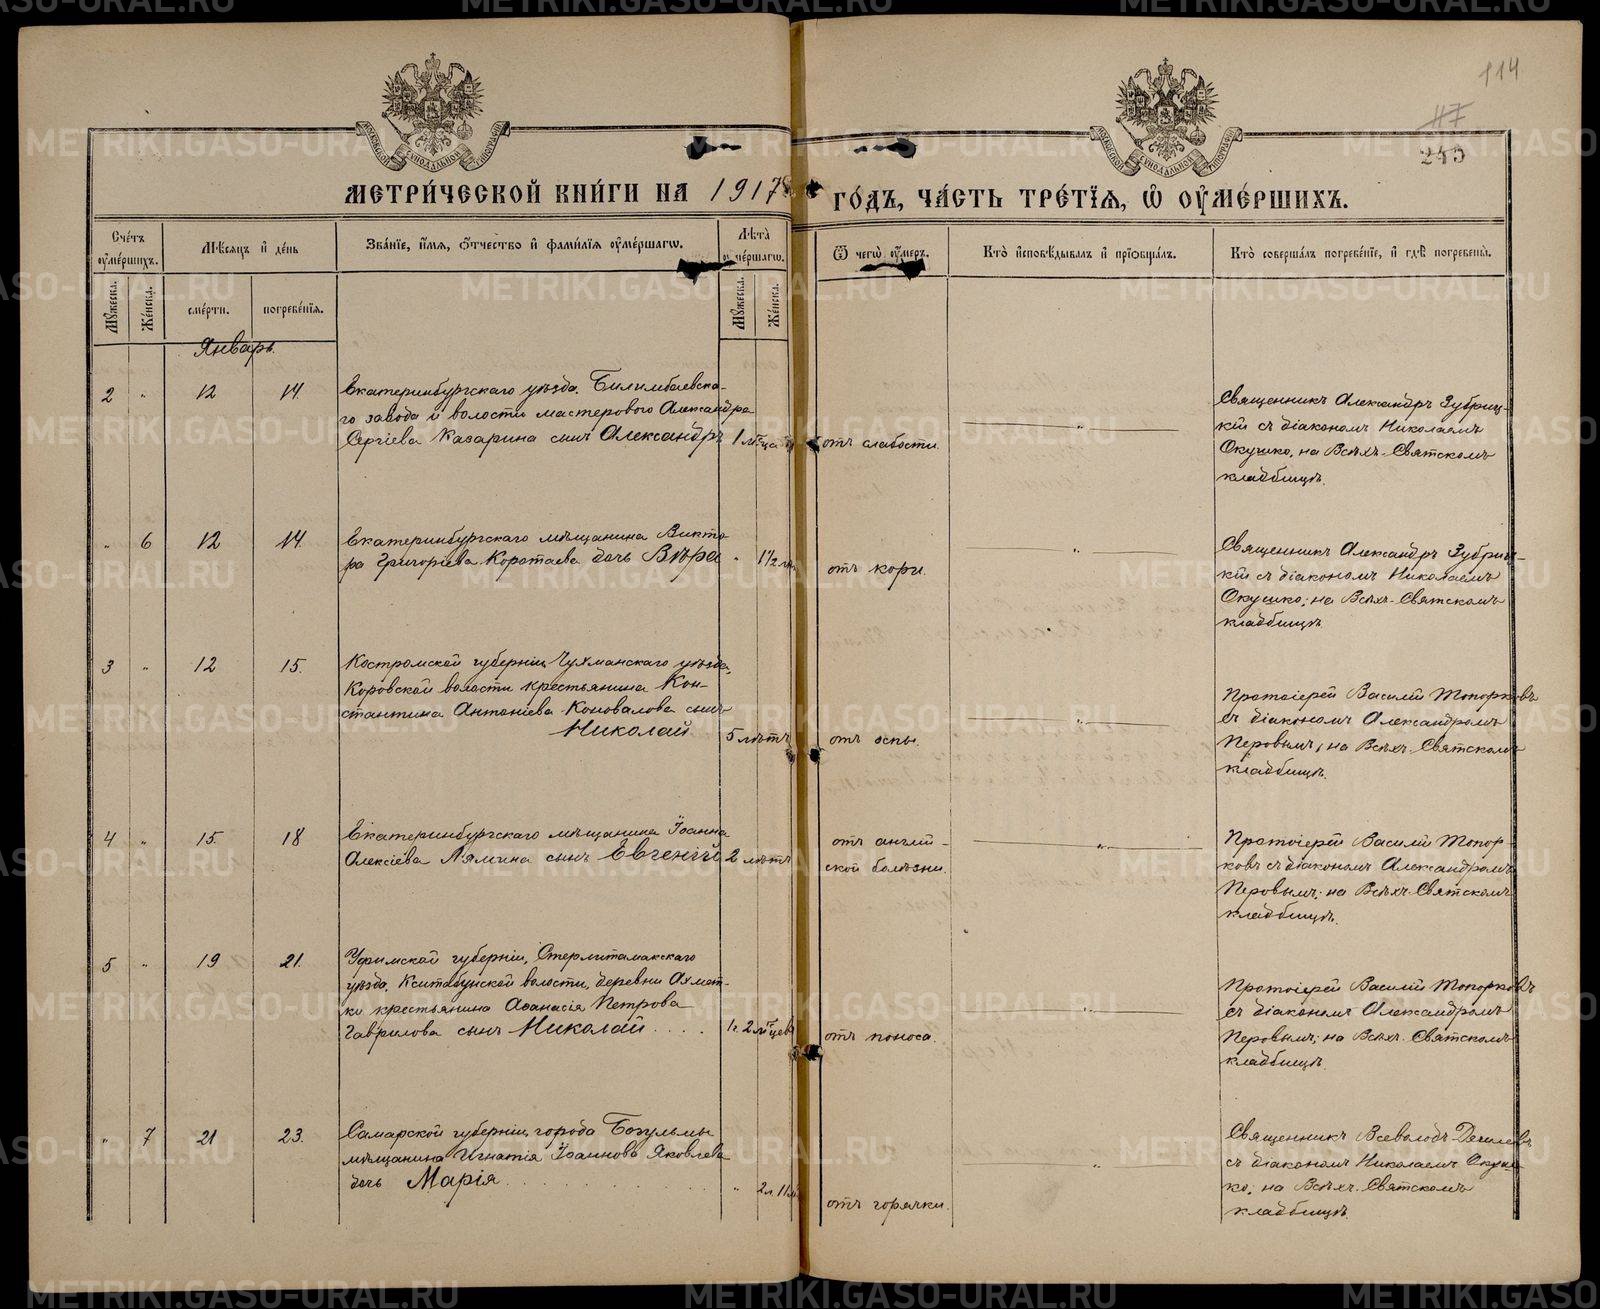 114
117
245
МОСКОВСКОЙ СИНОДАЛЬНОЙ ТИПОГРАФІИ
МОСКОВСКОЙ СИНОДАЛЬНОЙ ТИПОГРАФІИ
МЕТРИ́ЧЕСКОЙ КНИ́ГИ НА 1917 ГО́ДЪ, ЧА́СТЬ ТРЕ́ТІЯ, Ѽ ОУ҆МЕ́РШИХЪ.
Сче́тъ оу҆ме́ршихъ.
Мꙋ́жеска.
Же́нска.
Мѣ́сяцъ и҆ де́нь
сме́рти.
погребе́нїя.
Зва́нїе, и҆́мя, ѻ҆́тчество и҆ фами́лїя оу҆ме́ршагѡ.
Лѣ́та оу҆ме́ршагѡ.
Мꙋ́жеска.
Же́нска.
Ѿ чегѡ̀ оу҆́меръ.
Кто̀ и҆сповѣ́дывалъ и҆ прїѻбща́лъ.
Кто̀ соверша́лъ погребе́нїе, и҆ гдѣ̀ погребены̀.
Январь.
2 " 12 14.
Екатеринбургскаго уѣзда, Билимбаевска-
го завода и волости мастерового Александра
Сергіева Казарина сынъ Александръ
1 мѣсяца
отъ слабости.
"
Священникъ Александръ Зубриц-
кій съ діакономъ Николаемъ
Окушко, на Всѣхъ-Святскомъ
кладбищѣ.
" 6 12 14.
Екатеринбургскаго мѣщанина Викто-
ра Григоріева Коротаева дочь Вѣра
" 1½ лѣ.
отъ кори.
"
Священникъ Александръ Зубриц-
кій съ діакономъ Николаемъ
Окушко; на Всѣхъ-Святскомъ
кладбищѣ.
3 " 12 15.
Костромской губерніи, Чухманскаго уѣзда,
Коровской волости крестьянина Кон-
стантина Антоніева Коновалова сынъ
Николай
5 лѣтъ
отъ оспы.
"
Протоіерей Василій Топорковъ
съ діакономъ Александромъ
Перовымъ, на Всѣхъ-Святскомъ
кладбищѣ.
4 " 15. 18
Екатеринбургскаго мѣщанина Іоанна
Алексіева Лямина сынъ Евгеній
2 лѣтъ
отъ англій-
ской болѣзни.
"
Протоіерей Василій Топор-
ковъ съ діакономъ Александромъ
Перовымъ; на Всѣхъ-Святскомъ
кладбищѣ.
5 " 19 21.
Уфимской губерніи, Стерлитамакскаго
уѣзда, Кситабунской волости, деревни Ахмет-
ки крестьянина Аѳанасія Петрова
Гаврилова сынъ Николай . . . .
1 г. 2 мѣсяцевъ
отъ поноса.
"
Протоіерей Василій Топорковъ
съ діакономъ Александромъ
Перовымъ; на Всѣхъ-Святскомъ
кладбищѣ.
" 7 21 23.
Самарской губерніи, города Богульмы
мѣщанина Игнатія Іоаннова Яковлева
дочь Марія . . . . . . . .
" 2 л. 11 м.
отъ горячки.
"
Священникъ Всеволодъ
съ діакономъ Николаемъ Окуш-
ко; на Всѣхъ-Святскомъ
кладбищѣ.
METRIKI.GASO-URAL.RU